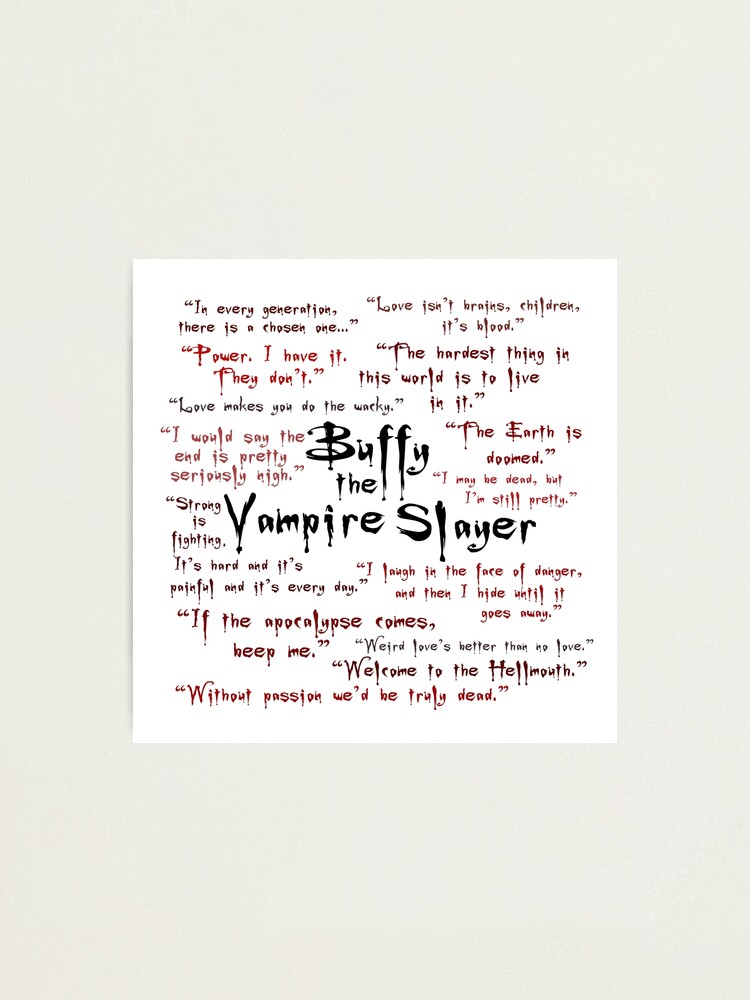 “In every generation,
there is a chosen one...”
“Love isn't brains, children,
it's blood.”
“Power. I have it.
They don't.”
“The hardest thing in
this world is to live
in it.”
“Love makes you do the wacky.”
“I would say the
end is pretty
seriously nigh.”
Buffy
the
Vampire Slayer
“The Earth is
doomed.”
“I may be dead, but
I'm still pretty.”
“Strong
is
fighting.
It's hard and it's
painful and it's every day.”
“I laugh in the face of danger,
and then I hide until it
goes away.”
“If the apocalypse comes,
beep me.”
“Weird love's better than no love.”
“Welcome to the Hellmouth.”
“Without passion we'd be truly dead.”